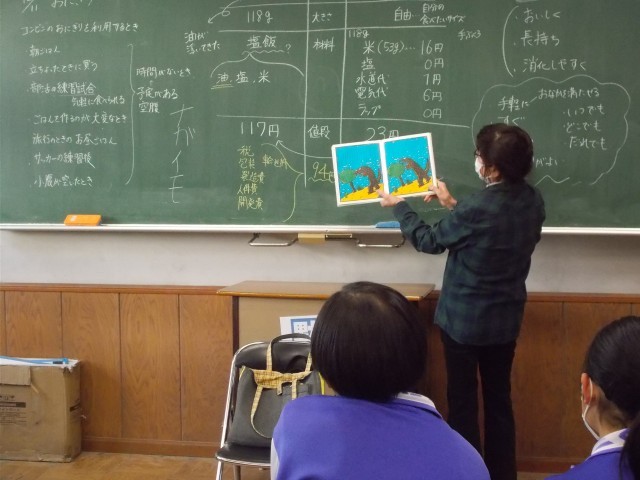 コンビニのおにぎりを利用するとき
朝ごはん
立ちよったときに買う
部活の練習試合
気軽に食べられる
ごはんを作るのが大変なとき
旅行のときのお昼ごはん
サッカーの練習後
小腹が空いたとき
時間がないとき
空腹
118g
大きさ
自由
自分の
食べたいサイズ
塩飯?
材料
油、塩、米
118g
米(53g)… 16円
塩 0円
水道代 1円
電気代 6円
ラップ 0円
117円
値段
23円
税
人件費
開発費
94
・おいしく
・長持ち
・消化しやすく
手軽に
すぐに
おなかを満たせる
・いつでも
・どこでも
・だれでも